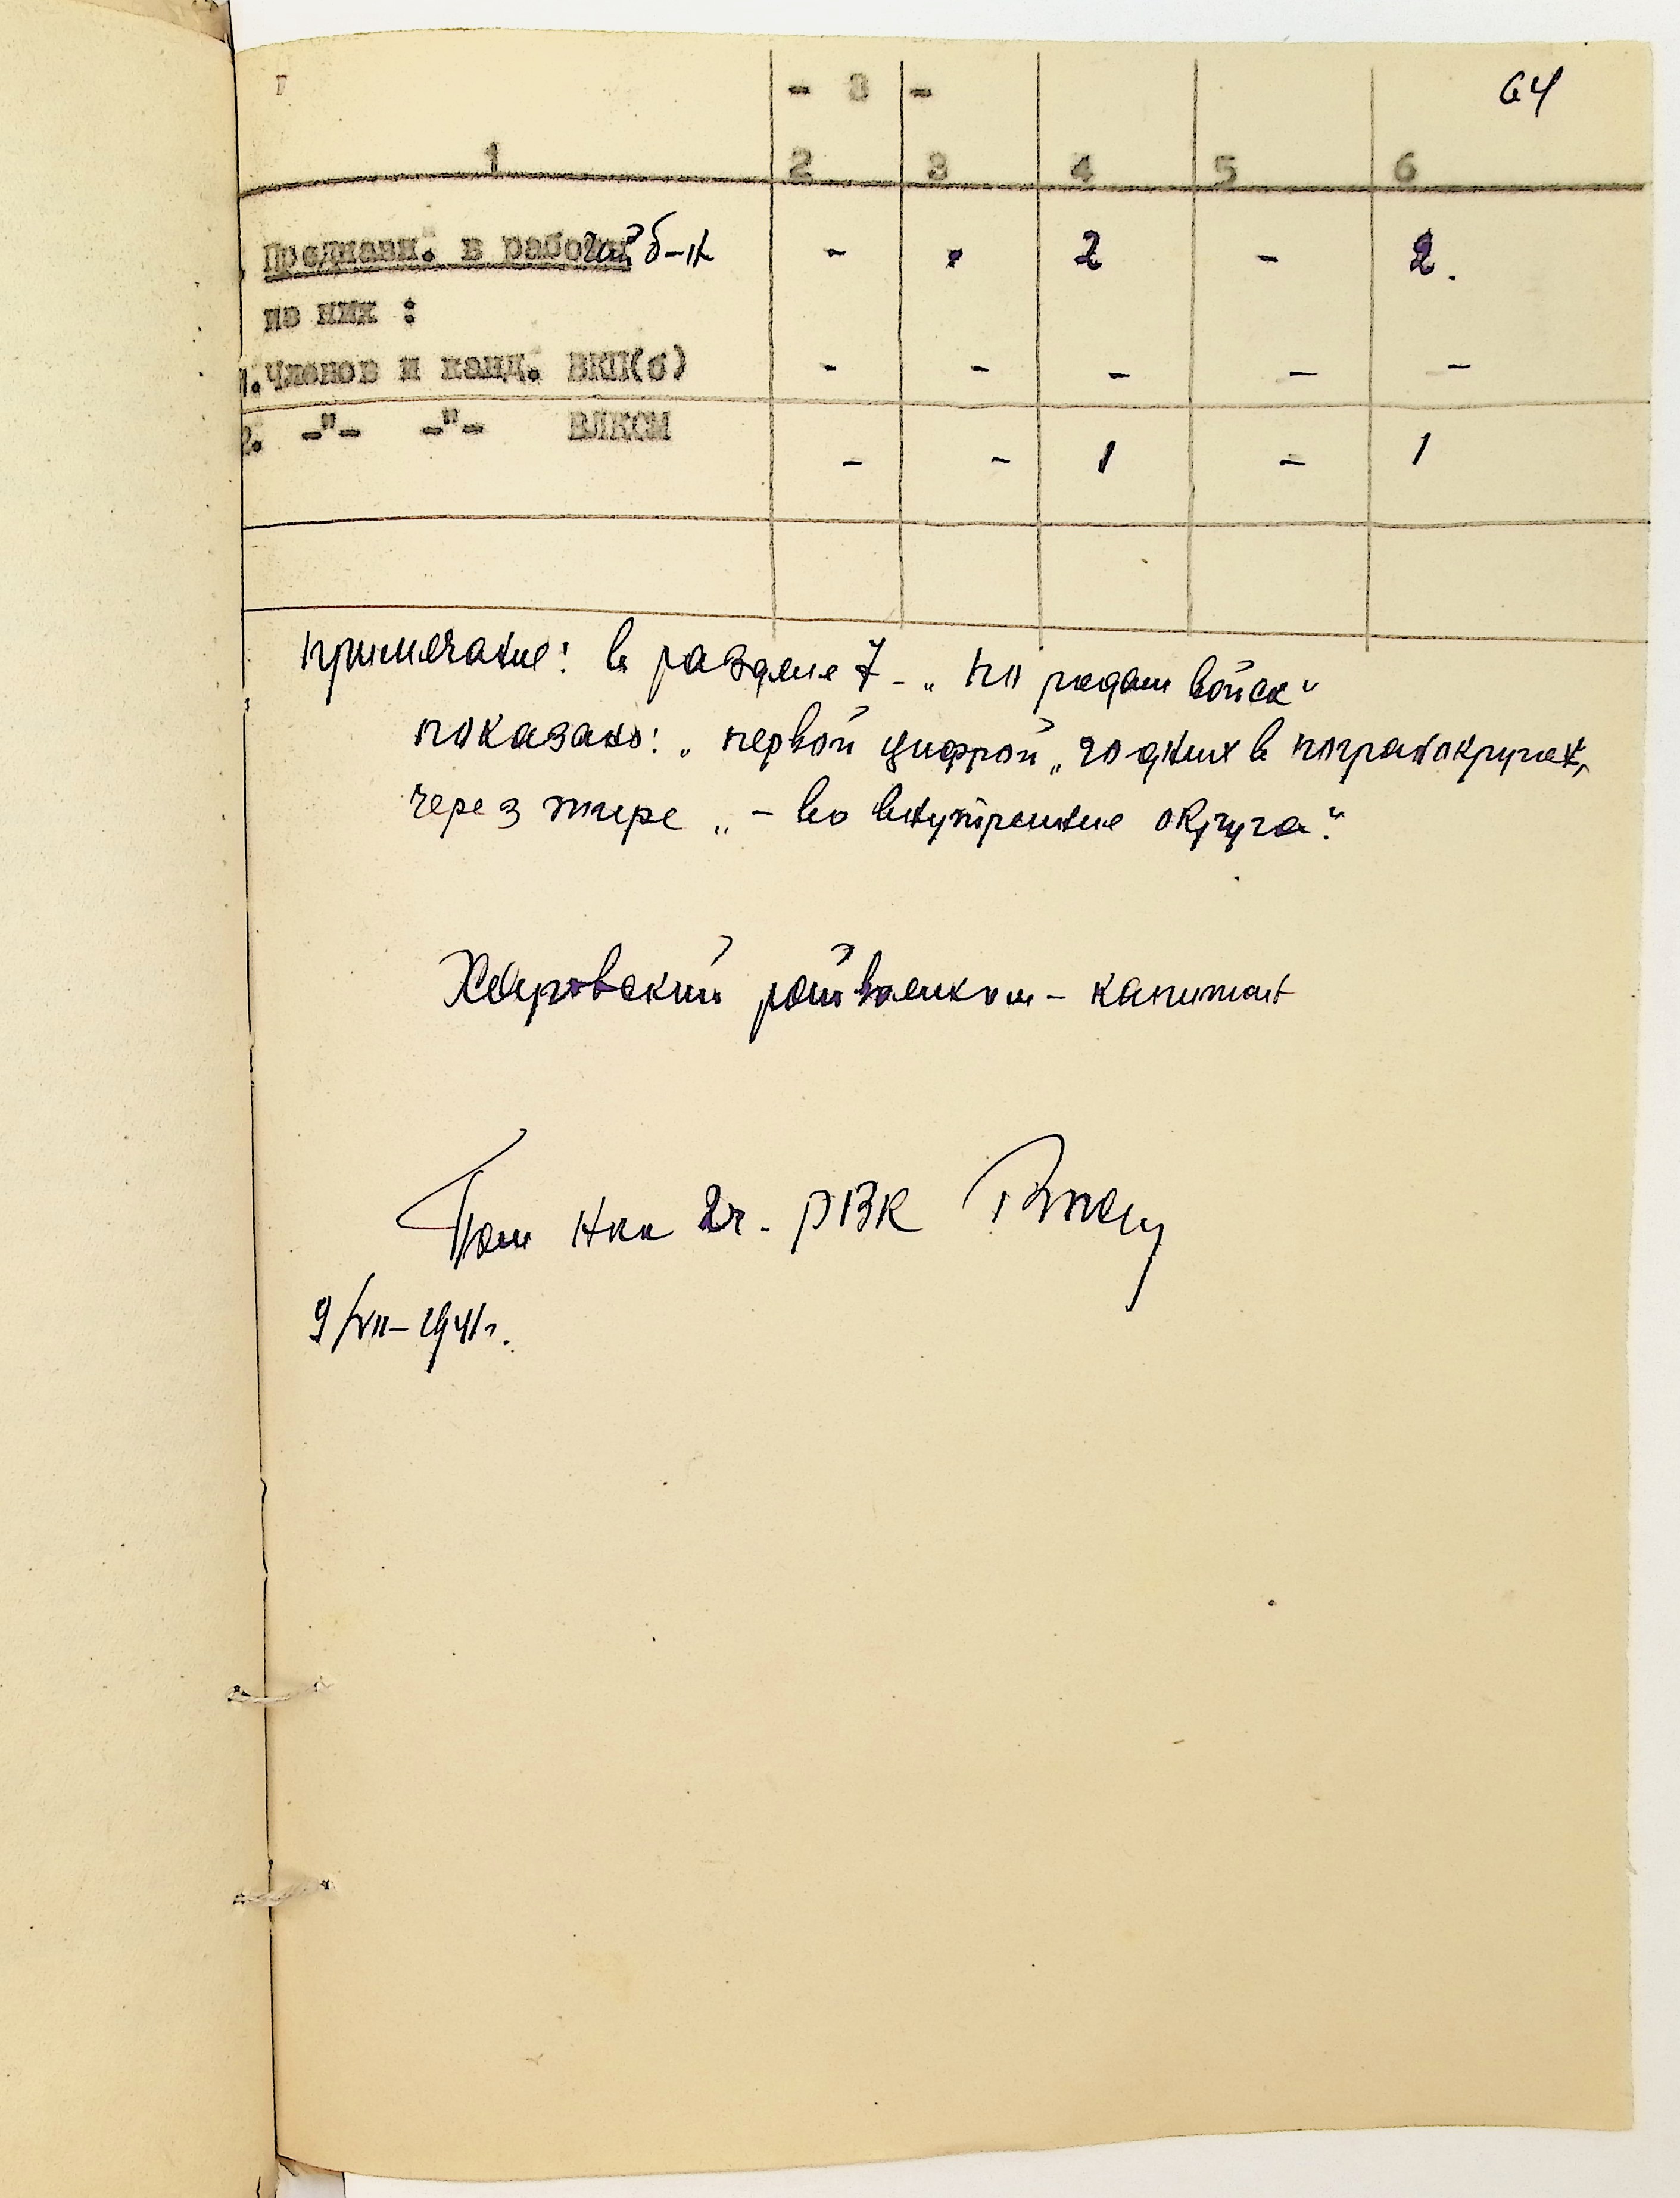 - 3 -
64
1 2 3 4 5 6
Предназн. в рабочий б-н - - 2 - 2.
из них :
1. Членов и канд. ВКП(б) - - - - -
2. -"- -"- ВЛКСМ - - 1 - 1
Примечание: в разделе 7 - „по родам войск“
показано: „первой цифрой „годных в погранокругах,
через тире „- во внутренние округа“.
райвоенком - капитан
Пом нач 2ч. РВК
9/VII-1941г.